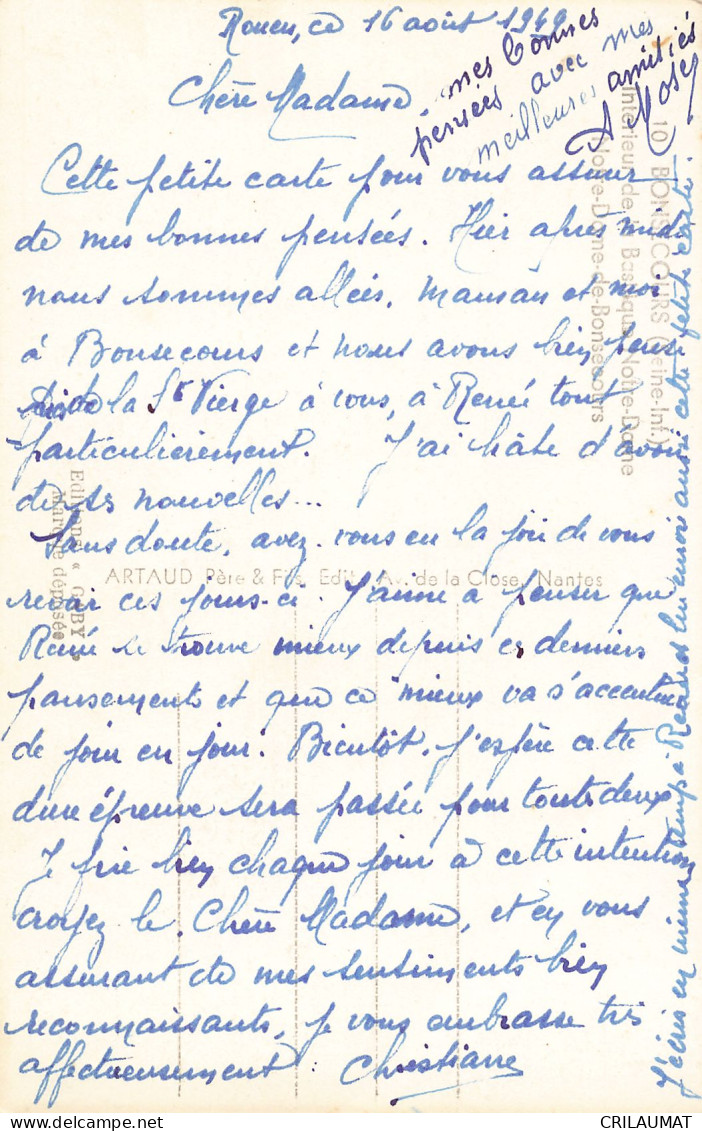 Rouen, ce 16 août 1949
mes bonnes
pensées avec mes
meilleures amitiés
Chère Madame,
Cette petite carte pour vous assurer
de mes bonnes pensées. Hier après midi
nous sommes allées, maman et moi
à Bonsecours et nous avons bien pensé
de la Ste Vierge à vous, à Renée tout
particulièrement. J'ai hâte d'avoir
de ses nouvelles...
Sans doute, avez-vous eu la joie de vous
revoir ces jours-ci. J'aime à penser que
Renée se trouve mieux depuis ces derniers
pansements et que ce mieux va s'accentuer
de jour en jour. Bientôt, j'espère cette
dure épreuve sera passée pour toutes deux
Je prie bien chaque jour à cette intention
croyez le, Chère Madame, et en vous
assurant de mes sentiments bien
reconnaissants, je vous embrasse très
affectueusement : Christiane
J'écris en même temps à Renée et lui envoie aussi cette petite carte.
10 BONSECOURS (Seine-Inf.)
Intérieur de la Basilique Notre-Dame
Notre-Dame-de-Bonsecours
Editions « GABY »
Marque déposée
ARTAUD Père & Fils, Edit., Av. de la Close, Nantes
CRILAUMAT